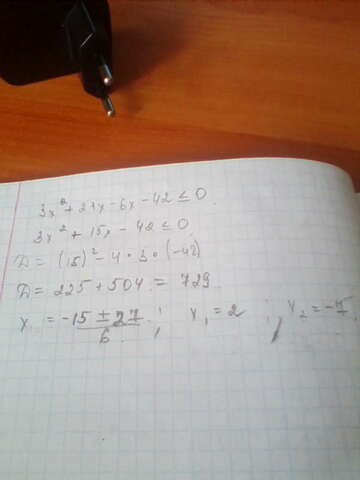 3x² + 21x - 6x - 42 ≤ 0.
3x² + 15x - 42 ≤ 0.
D = (15)² - 4 · 3 · (-42)
D = 225 + 504 = 729
x = -15 ± 27 / 6 ; x₁ = 2 ; x₂ = -7